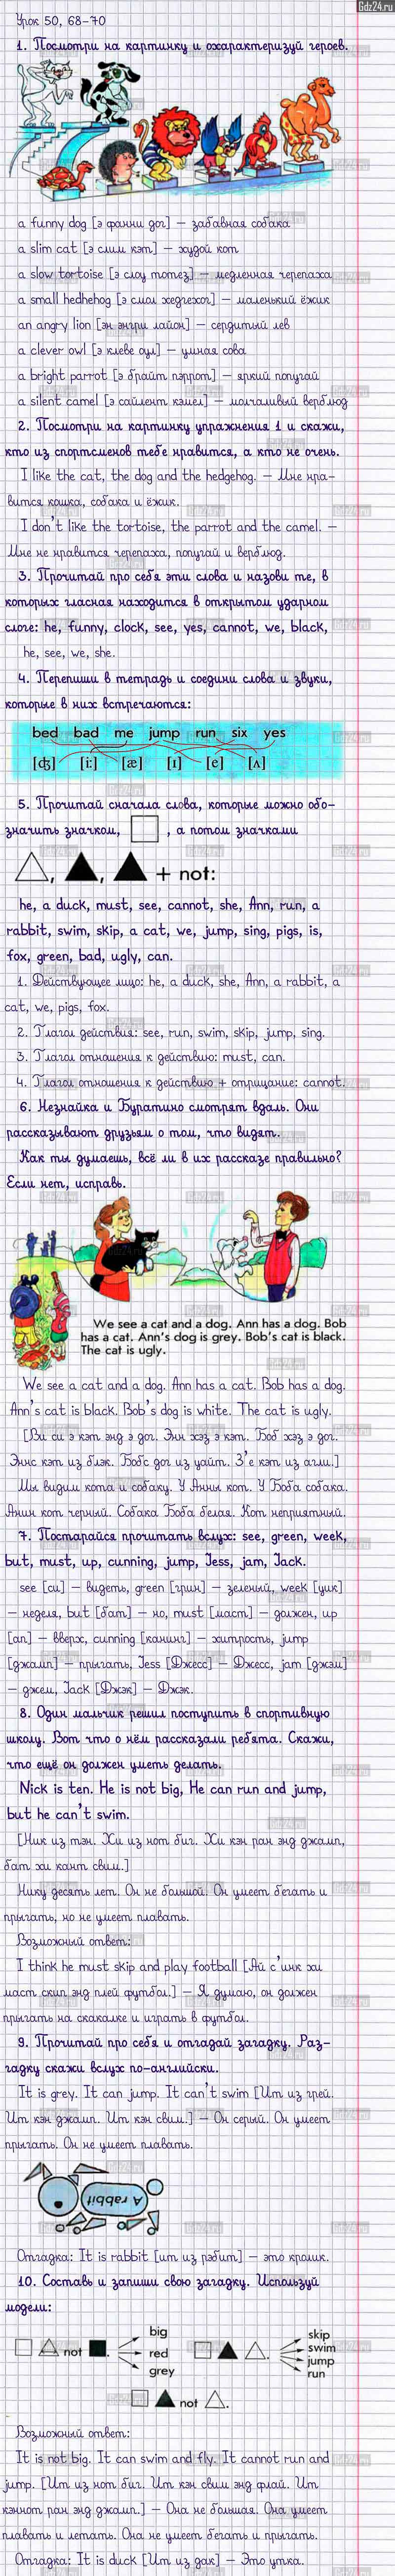 Gdz24.ru
Урок 50, 68-70
1. Посмотри на картинку и охарактеризуй героев.
a funny dog [э фанни дог] — забавная собака
a slim cat [э слим кэт] — худой кот
a slow tortoise [э слоу тотез] — медленная черепаха
a small hedhehog [э смол хедгехог] — маленький ёжик
an angry lion [эн энгри лайон] — сердитый лев
a clever owl [э клеве оул] — умная сова
a bright parrot [э брайт пэррот] — яркий попугай
a silent camel [э сайлент кэмел] — молчаливый верблюд
2. Посмотри на картинку упражнения 1 и скажи,
кто из спортсменов тебе нравится, а кто не очень.
I like the cat, the dog and the hedgehog. — Мне нра-
вится кошка, собака и ёжик.
I don't like the tortoise, the parrot and the camel. —
Мне не нравится черепаха, попугай и верблюд.
3. Прочитай про себя эти слова и назови те, в
которых гласная находится в открытом ударном
слоге: he, funny, clock, see, yes, cannot, we, black,
he, see, we, she.
4. Перепиши в тетрадь и соедини слова и звуки,
которые в них встречаются:
bed bad me jump run six yes
[ʤ] [i:] [æ] [ɪ] [e] [ʌ]
5. Прочитай сначала слова, которые можно обо-
значить значком, , а потом значками
, , + not:
he, a duck, must, see, cannot, she, Ann, run, a
rabbit, swim, skip, a cat, we, jump, sing, pigs, is,
fox, green, bad, ugly, can.
1. Действующее лицо: he, a duck, she, Ann, a rabbit, a
cat, we, pigs, fox.
2. Глагол действия: see, run, swim, skip, jump, sing.
3. Глагол отношения к действию: must, can.
4. Глагол отношения к действию + отрицание: cannot.
6. Незнайка и Буратино смотрят вдаль. Они
рассказывают друзьям о том, что видят.
Как ты думаешь, всё ли в их рассказе правильно?
Если нет, исправь.
We see a cat and a dog. Ann has a dog. Bob
has a cat. Ann's dog is grey. Bob's cat is black.
The cat is ugly.
We see a cat and a dog. Ann has a cat. Bob has a dog.
Ann's cat is black. Bob's dog is white. The cat is ugly.
[Ви си э кэт энд э дог. Энн хэз э кэт. Боб хэз э дог.
Эннс кэт из блэк. Бобс дог из уайт. З'е кэт из агли.]
Мы видим кота и собаку. У Анны кот. У Боба собака.
Анин кот черный. Собака Боба белая. Кот неприятный.
7. Постарайся прочитать вслух: see, green, week,
but, must, up, cunning, jump, Jess, jam, Jack.
see [си] — видеть, green [грин] — зеленый, week [уик]
— неделя, but [бат] — но, must [маст] — должен, up
[ап] — вверх, cunning [канинг] — хитрость, jump
[джамп] — прыгать, Jess [Джесс] — Джесс, jam [джэм]
— джем, Jack [Джэк] — Джэк.
8. Один мальчик решил поступить в спортивную
школу. Вот что о нём рассказали ребята. Скажи,
что ещё он должен уметь делать.
Nick is ten. He is not big, He can run and jump,
but he can't swim.
[Ник из тэн. Хи из нот биг. Хи кэн ран энд джамп,
бат хи кант свим.]
Нику десять лет. Он не большой. Он умеет бегать и
прыгать, но не умеет плавать.
Возможный ответ:
I think he must skip and play football [Ай с'инк хи
маст скип энд плей футбол.] — Я думаю, он должен
прыгать на скакалке и играть в футбол.
9. Прочитай про себя и отгадай загадку. Раз-
гадку скажи вслух по-английски.
It is grey. It can jump. It can't swim [Ит из грей.
Ит кэн джамп. Ит кэн свим.] — Он серый. Он умеет
прыгать. Он не умеет плавать.
A rabbit
Отгадка: It is rabbit [ит из рэбит] — это кролик.
10. Составь и запиши свою загадку. Используй
модели:
not big red grey
skip swim jump run
not
Возможный ответ:
It is not big. It can swim and fly. It cannot run and
jump. [Ит из нот биг. Ит кэн свим энд флай. Ит
кэннот ран энд джамп.] — Она не большая. Она умеет
плавать и летать. Она не умеет бегать и прыгать.
Отгадка: It is duck [Ит из дак] — Это утка.